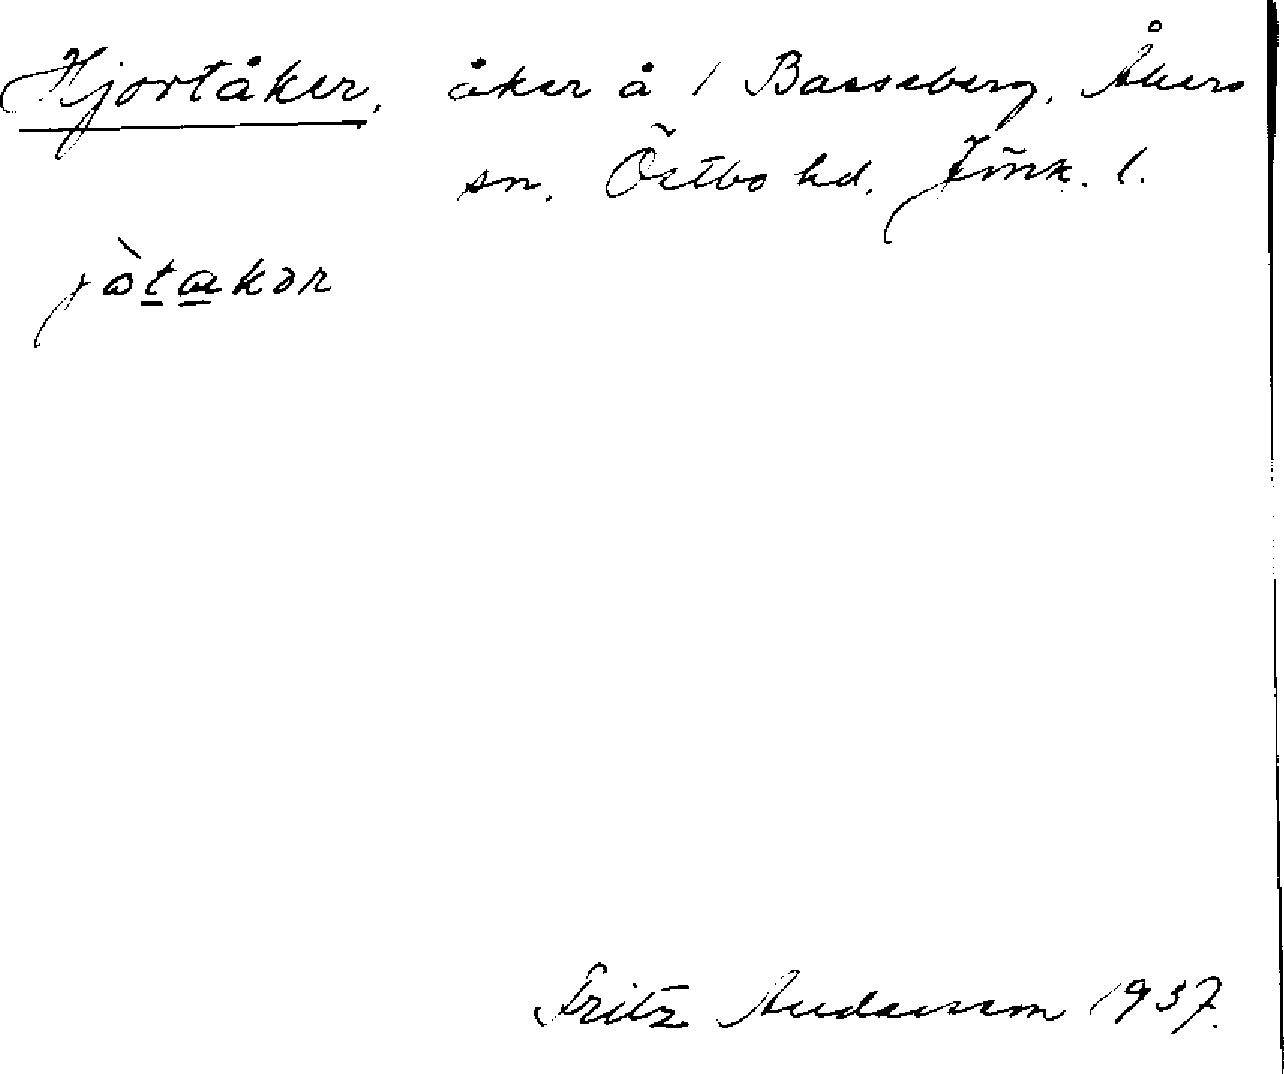 Hjortåker, åker å 1 Basseberg, Åkers
sn. Östbo hd. Jönk. l.
jòtakər
Fritz Andersson 1937.